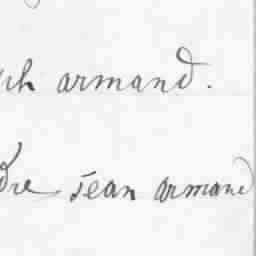 armand.
jean armand